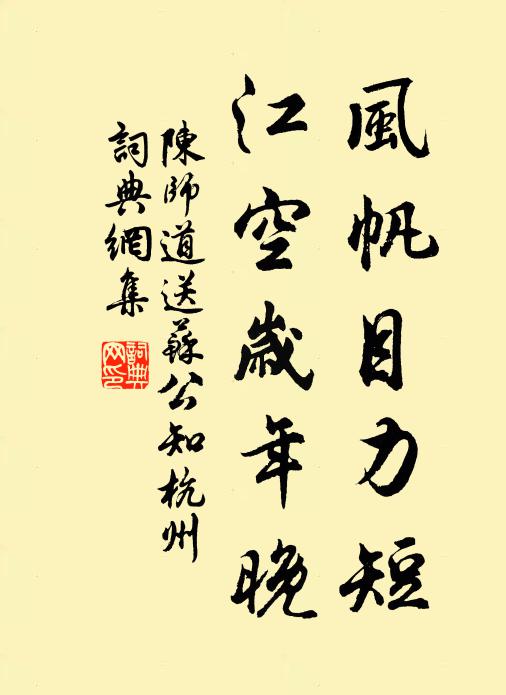 風帆目力短
江空歲年晚
陳師道送蘇公知杭州
詞典網集
詞典
网印